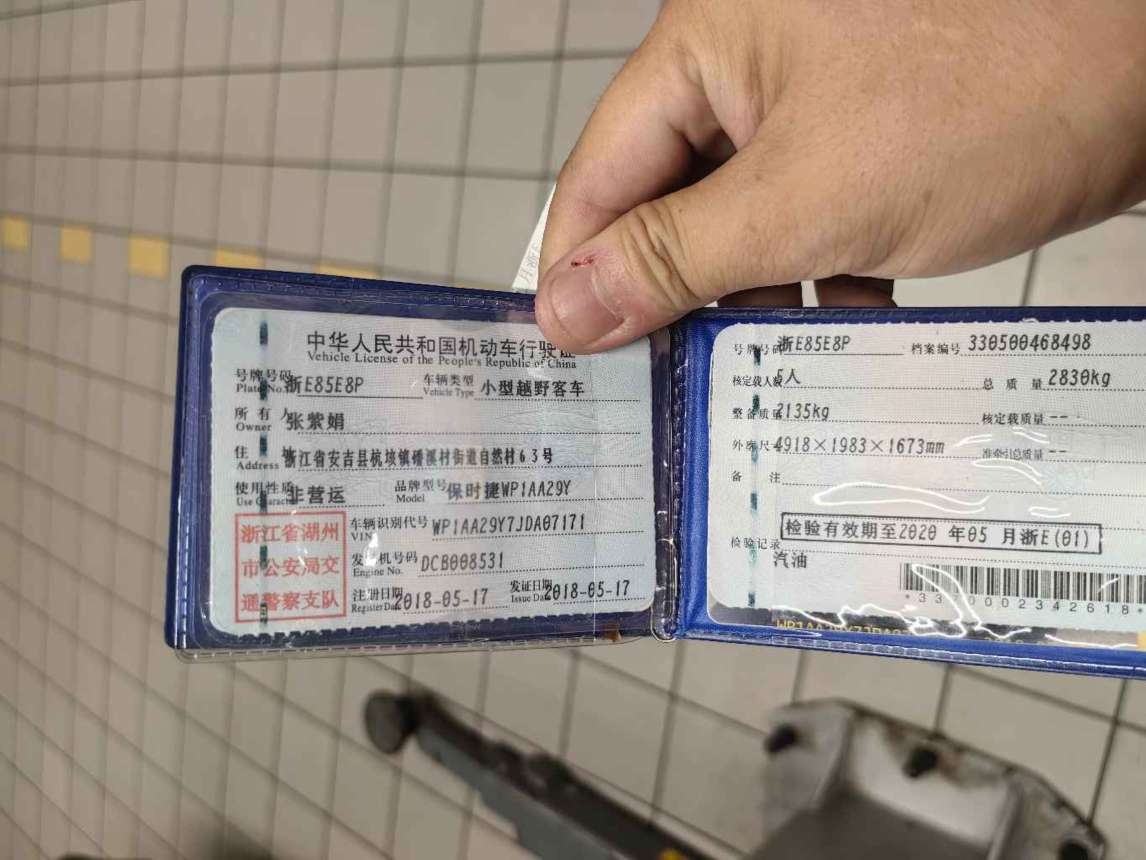 中华人民共和国机动车行驶证
Vehicle License of the People's Republic of China
号牌号码 浙E85E8P 车辆类型 小型越野客车
Plate No. Vehicle Type
所有人 张紫娟
Owner
住址 浙江省安吉县杭垓镇磻溪村街道自然村63号
Address
使用性质 非营运 品牌型号 保时捷WP1AA29Y
Use Character Model
浙江省湖州
市公安局交
通警察支队
车辆识别代号 WP1AA29Y7JDA07171
VIN
发动机号码 DCB008531
Engine No.
注册日期 2018-05-17 发证日期 2018-05-17
Register Date Issue Date
号牌号码 浙E85E8P 档案编号 330500468498
核定载人数 5人 总质量 2830kg
整备质量 2135kg 核定载质量 --
外廓尺寸 4918×1983×1673mm 准牵引总质量 --
备注
检验有效期至2020 年05 月浙E(01)
检验记录
汽油